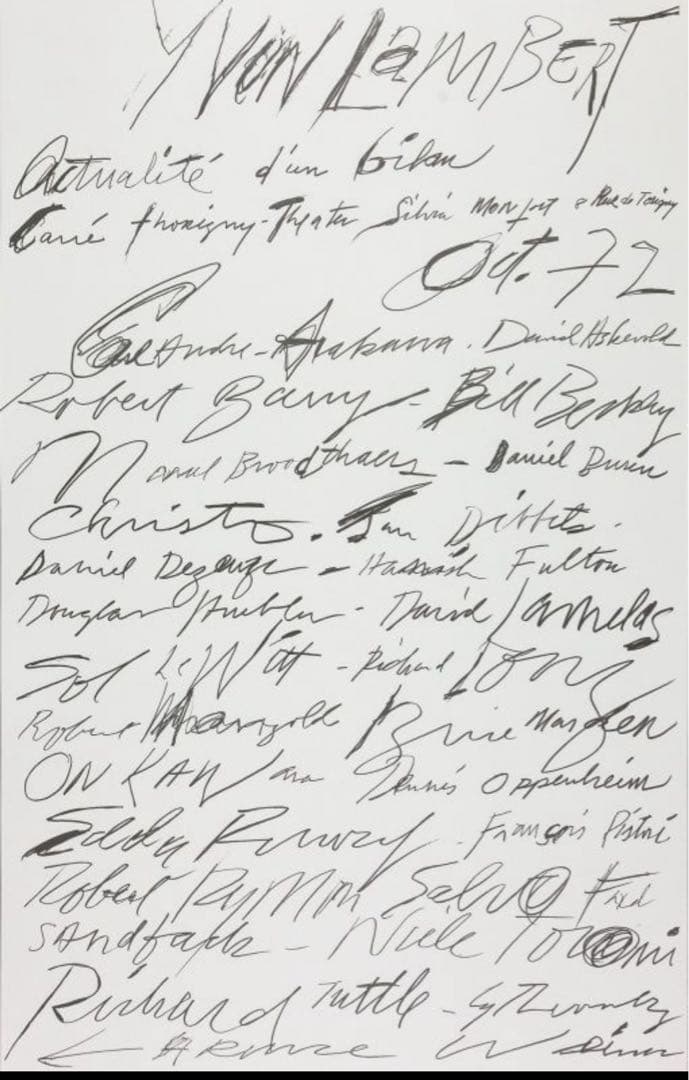 YVON LAMBERT
Actualité d'un bilan
Carré thorigny-Theater Silvia Monfort 8 Rue de Torigny
Oct. 72
Carl Andre - Arakawa. David Askevold
Robert Barry - Bill Beckley
Marcel Broodthaers - Daniel Buren
Christo. Jan Dibbets.
Daniel Dezeuze - Hamish Fulton
Douglas Huebler - David Lamelas
Sol LeWitt - Richard Long
Robert Mangold Brice Marden
ON KAWara Dennis Oppenheim
Edda Renouf. François Ristori
Robert Ryman Salvo Fred
SAndback - Niele Toroni
Richard Tuttle - Cy Twombly
LAWRence Weiner